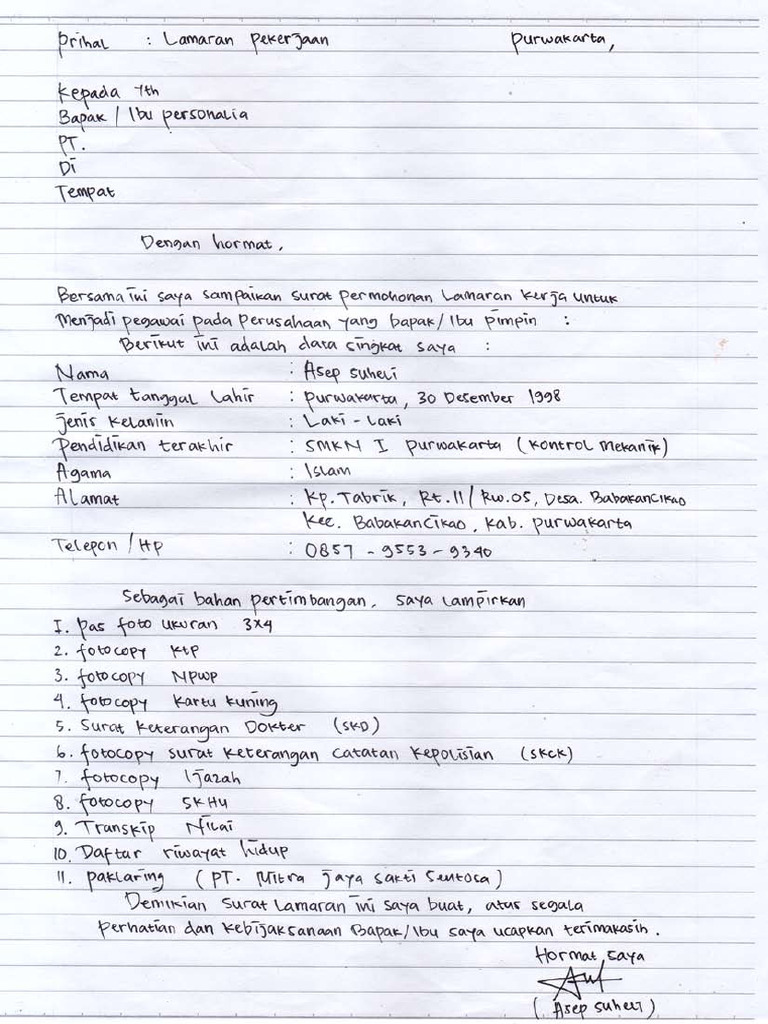 Prihal : Lamaran pekerjaan Purwakarta,
Kepada Yth
Bapak / Ibu personalia
PT.
Di
Tempat
Dengan hormat,
Bersama ini saya sampaikan surat permohonan Lamaran kerja untuk
Menjadi pegawai pada perusahaan yang bapak/Ibu pimpin :
Berikut ini adalah data singkat saya :
Nama : Asep suheli
Tempat tanggal Lahir : purwakarta, 30 Desember 1998
jenis kelamin : Laki - Laki
Pendidikan terakhir : SMKN 1 purwakarta (Kontrol Mekanik)
Agama : Islam
Alamat : Kp. Tabrik, Rt.11/ Rw.05, Desa. Babakancikao
Kec. Babakancikao, Kab. purwakarta
Telepon / Hp : 0857 - 9553 - 9340
Sebagai bahan pertimbangan, saya Lampirkan
1. pas foto ukuran 3x4
2. fotocopy Ktp
3. fotocopy NPWP
4. fotocopy Kartu kuning
5. Surat keterangan Dokter (SKD)
6. fotocopy surat keterangan catatan kepolisian (SKCK)
7. fotocopy Ijazah
8. fotocopy SKHU
9. Transkip Nilai
10. Daftar riwayat hidup
11. paklaring (PT. Mitra jaya sakti Sentosa)
Demikian surat Lamaran ini saya buat, atas segala
perhatian dan kebijaksanaan Bapak/Ibu saya ucapkan terimakasih.
Hormat saya
(Asep suheli)